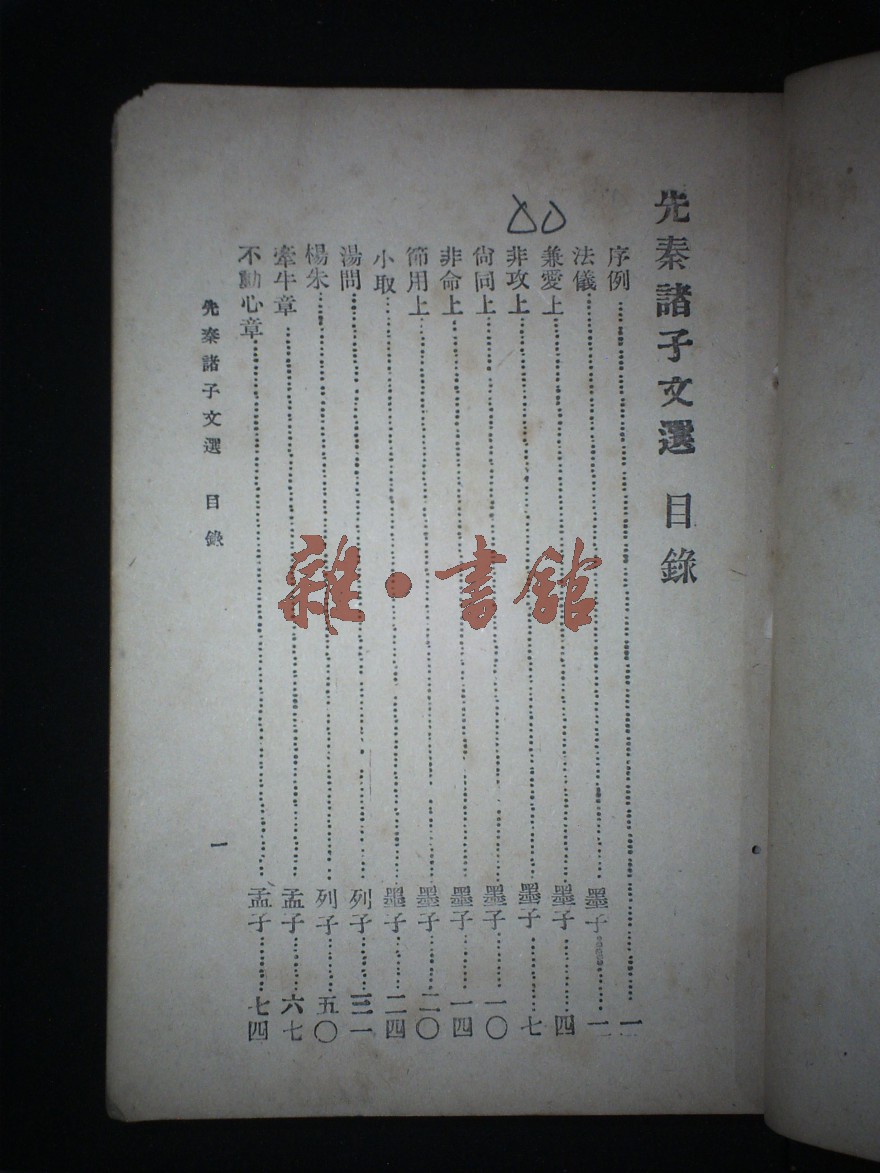 先秦諸子文選 目錄
序例……一
法儀……墨子……一
兼愛上……墨子……四
非攻上……墨子……七
尙同上……墨子……一〇
非命上……墨子……一四
節用上……墨子……二〇
小取……墨子……二四
湯問……列子……三一
楊朱……列子……五〇
牽牛章……孟子……六七
不動心章……孟子……七四
先秦諸子文選 目錄
一
雜·書館